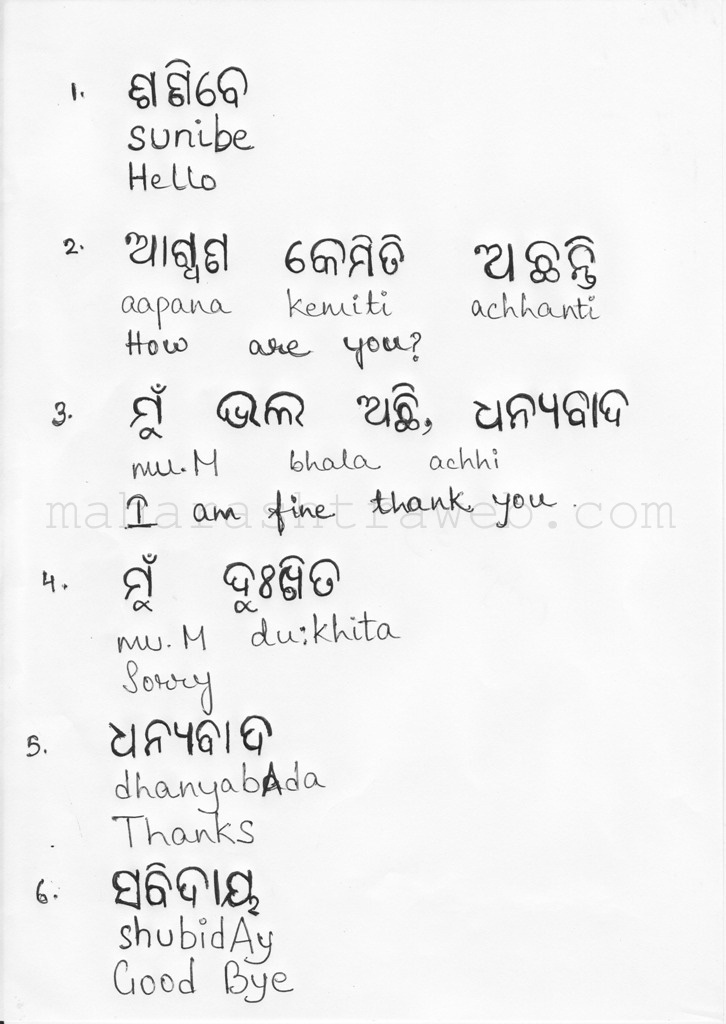 1. ଶଣିବେ
sunibe
Hello
2. ଆପଣ କେମିତି ଅଛନ୍ତି
aapana kemiti achhanti
How are you?
3. ମୁଁ ଭଲ ଅଛି, ଧନ୍ୟବାଦ
mu.M bhala achhi
I am fine thank you.
maharashtraweb.com
4. ମୁଁ ଦୁଃଖିତ
mu.M du:khita
Sorry
5. ଧନ୍ୟବାଦ
dhanyabAda
Thanks
6. ସବିଦାୟ
shubidAy
Good Bye